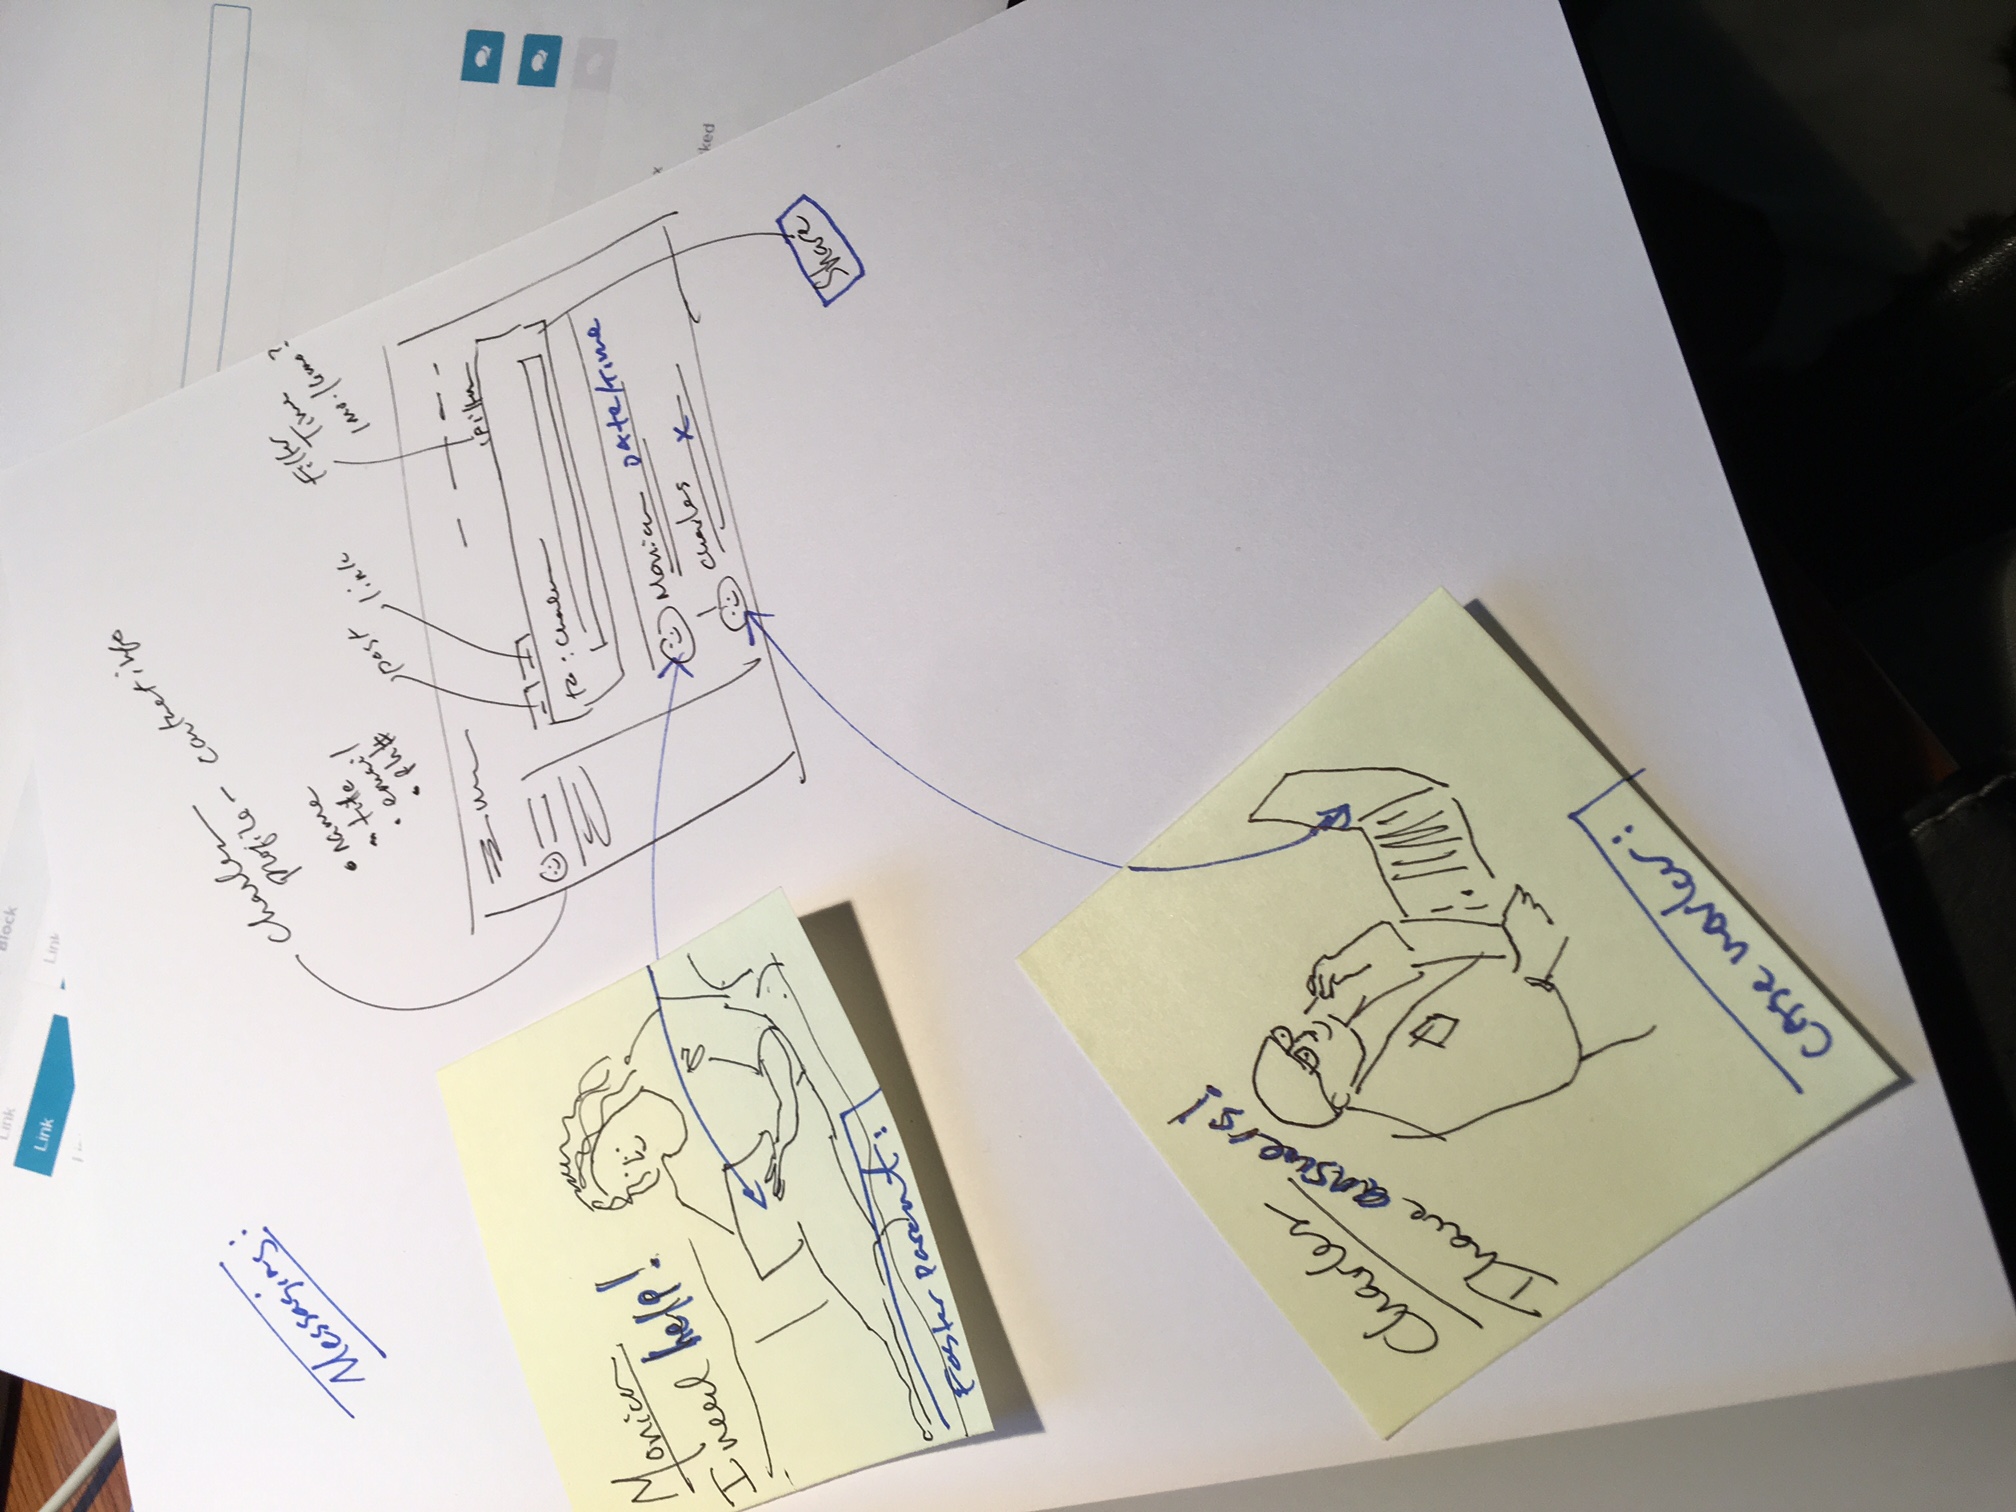 Link
Block
Link
Link
Messaging:
Charles
profile - contact info
• name
• title
• email
• ph#
post
link
Filter
Time
1mo./6mo?
Filter
to: Charles
Monica DATE/TIME
Charles x
Share
Monica
I need help!
Foster Parent:
Charles
I have answers!
CASE worker:
ked